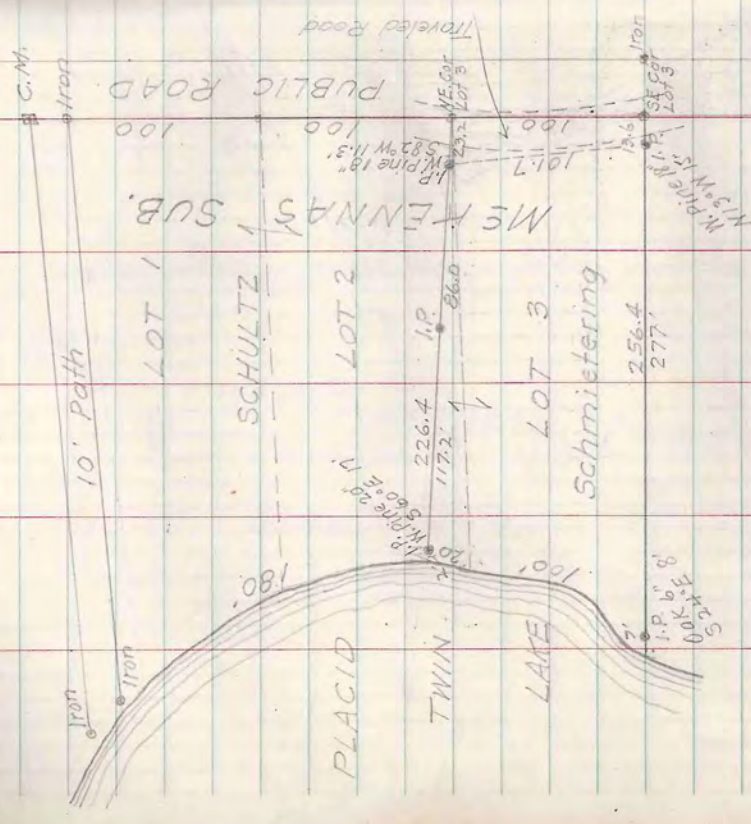 Traveled Road
C.M.
Iron
PUBLIC ROAD
100
100
100
N.E. Cor
LOT 3
Iron
S.E. Cor
LOT 3
23.2
101.7
13.6
I.P.
W. Pine 18"
S 82° W 11.3'
I.P.
W. Pine 18"
N 13° W 15'
McKENNAS SUB.
LOT 1
SCHULTZ
LOT 2
I.P.
86.0
LOT 3
Schmietering
256.4
277'
10' Path
226.4
117.2'
I.P.
W. Pine 20"
S 60° E 17'
20'
180'
100'
7'
I.P.
Oak 6"
S 24° E 8'
Iron
Iron
PLACID
TWIN
LAKE